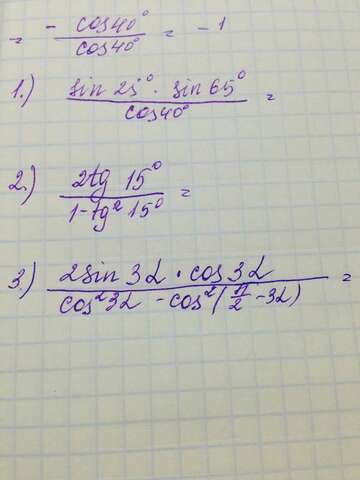 = - cos40° / cos40° = -1
1.) sin 25° · sin 65° / cos40° =
2.) 2tg 15° / 1-tg² 15° =
3.) 2sin 3α · cos3α / cos²3α - cos²(π/2 - 3α) =